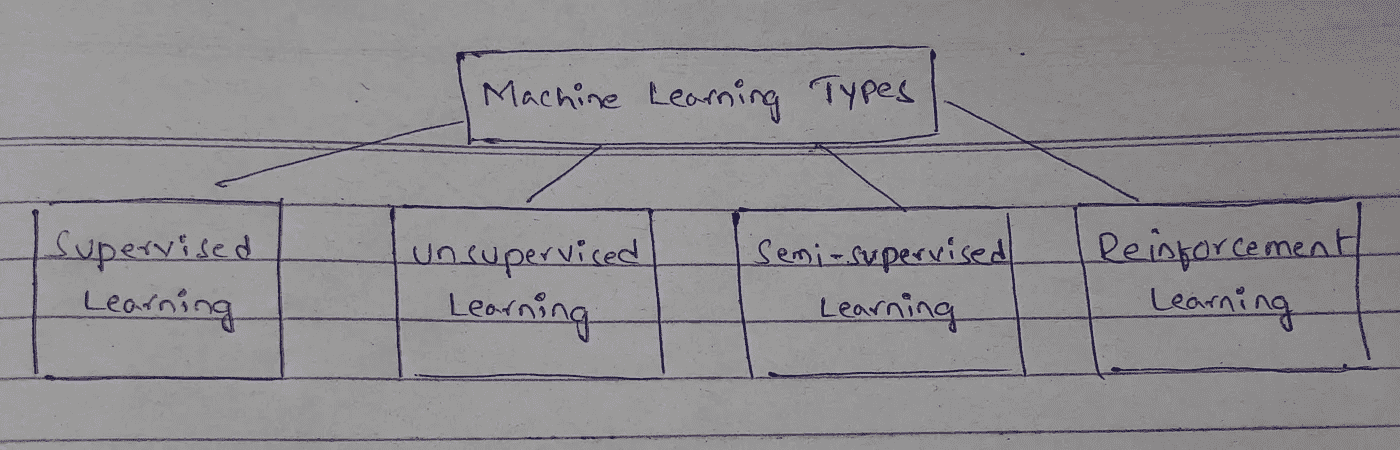 Machine Learning Types
Supervised
Learning
Unsupervised
Learning
Semi-supervised
Learning
Reinforcement
Learning